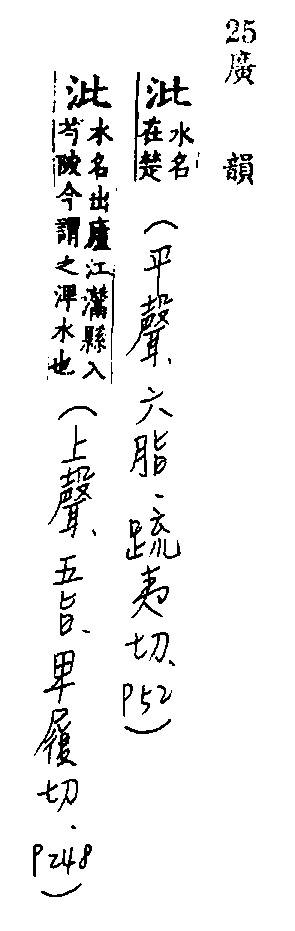 25廣韻
沘水名在楚(平聲、六脂、疏夷切、P52)
沘水名出廬江灊縣入芍陂今謂之渒水也(上聲、五旨、卑履切、P248)